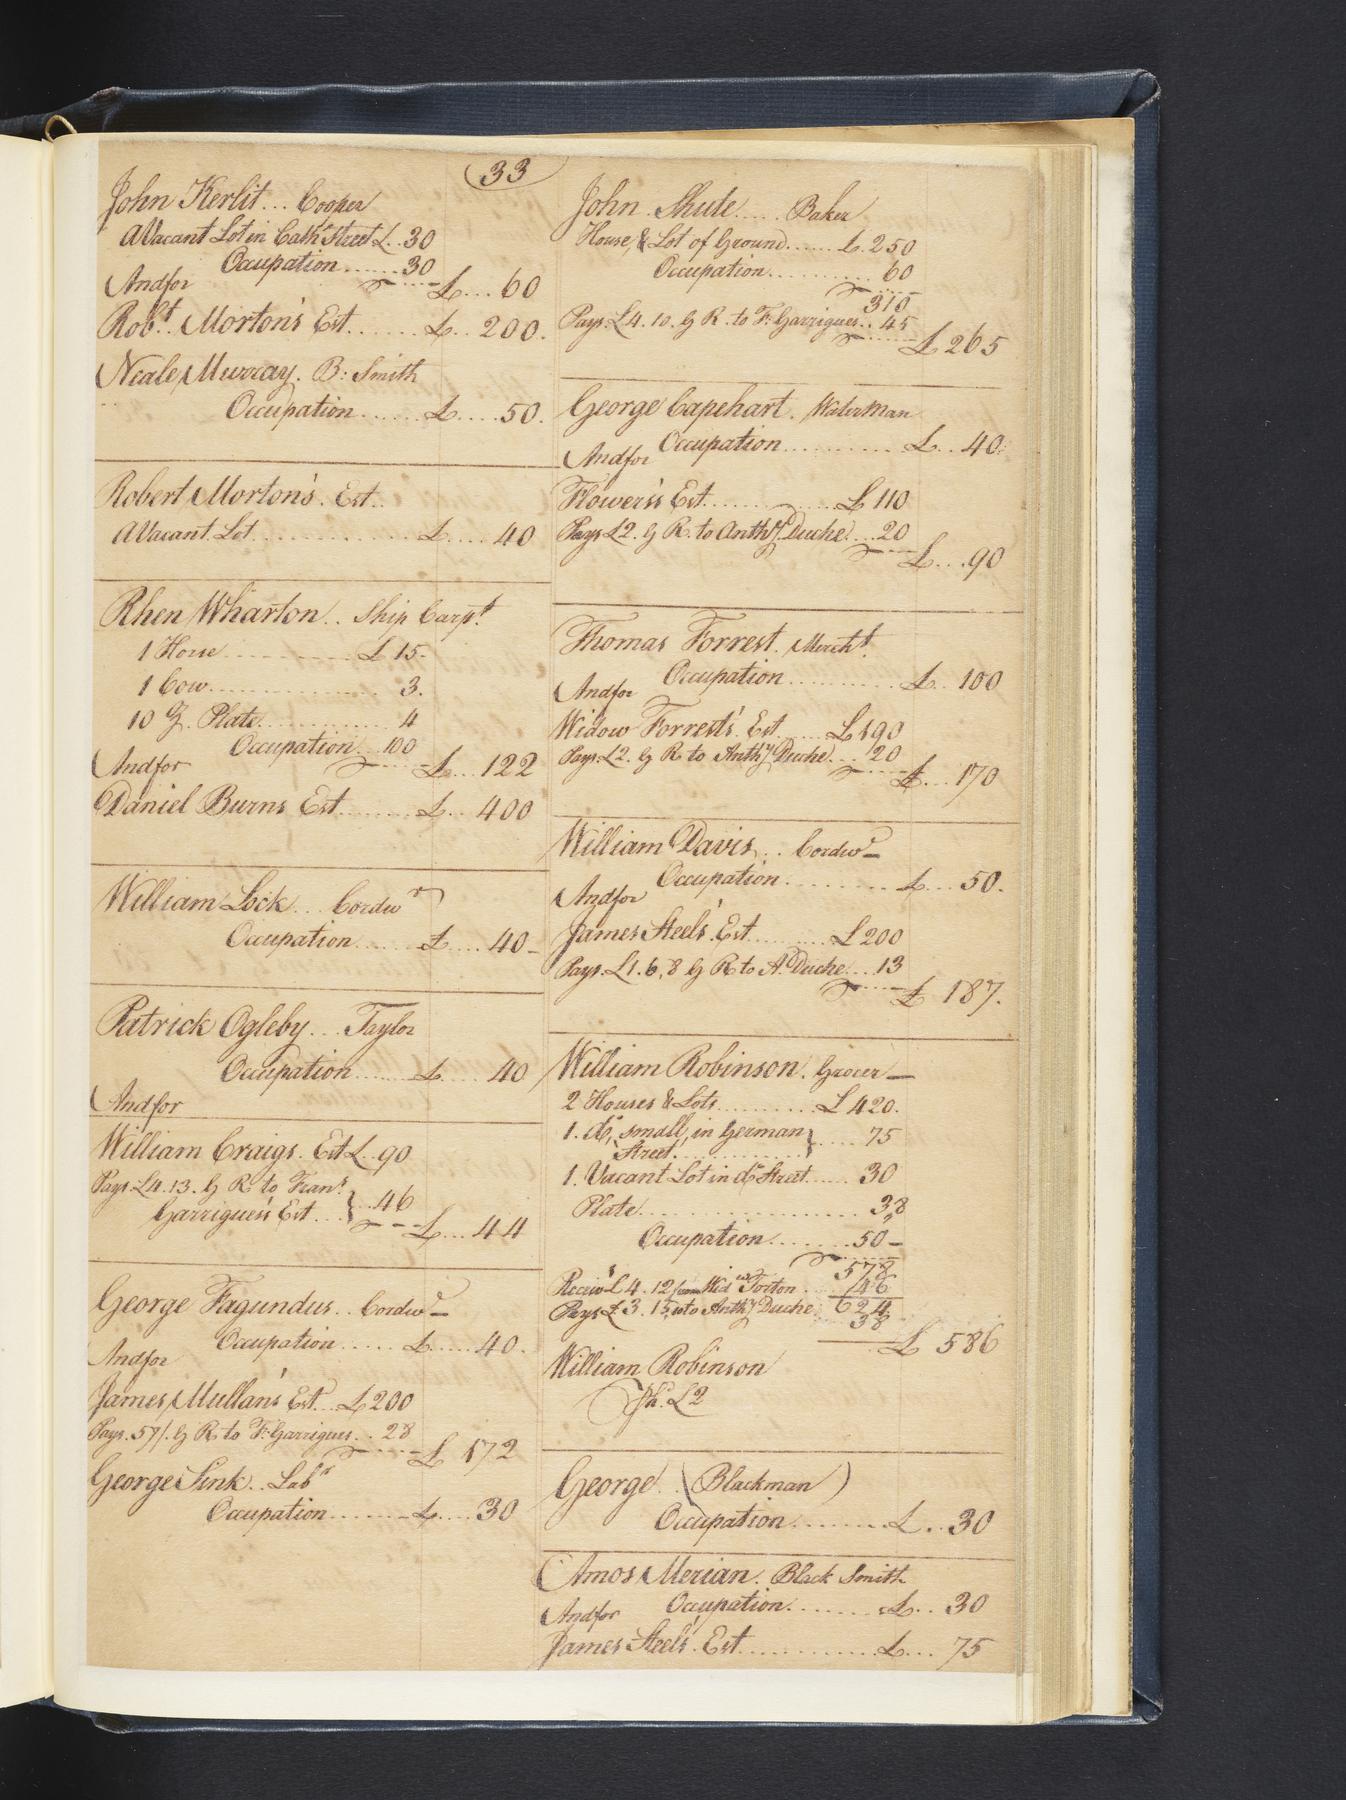 33
John Kerlit... Cooper
A Vacant Lot in Cath Street £..30
Occupation......30
Andfor £....60
Robt. Morton's Est......£..200.
Neale Murray. B: Smith
Occupation......£....50.
Robert Morton's. Est..
A Vacant Lot............£....40
Rhen Wharton.. Ship Carpt.
1 Horse............£15.
1 Cow............3.
10 oz. Plate............4
Occupation...100
Andfor £...122
Daniel Burns Est......£..400
William Lock... Cordwr
Occupation......£....40-
Patrick Ogleby... Taylor
Occupation......£....40
Andfor
William Craigs. Est £..90
Pays £4.13. G R to Frans.
Garrigues's Est... } ..46
£...44
George Fagundus.. Cordwr
Occupation.....£....40.
Andfor
James Mullan's Est...£200
Pays. 57/. G R to F. Garrigues.. 28
£ 172
George Sink.. Labr
Occupation......£....30
John Shute.... Baker
House, & Lot of Ground......£.250
Occupation..........60
310
Pays £4.10. G R. to F. Garrigues..45
£265
George Capehart. Waterman
Occupation..........£..40.
Andfor
Flowers's Est..........£110
Pays £2. G R. to Anthy Duche...20
£...90
Thomas Forrest. Mercht.
Occupation..........£..100
Andfor
Widow Forrest's Est.....£190
Pays £2. G R to Anthy Duche...20
£...170
William Davis... Cordwr
Occupation..........£...50.
Andfor
James Steels' Est........£200
Pays £1.6.8 G R to A. Duche...13
£ 187.
William Robinson. Grocer
2 Houses & Lots..........£420.
1. do, small, in German } ....75
Street............
1. Vacant Lot in do Street.....30
Plate.................3,,8
Occupation........50-
578
Receivs £4.12 from Widw Torton..46
624
Pays £3.15,, to Anthy Duche..38
£ 586
William Robinson
Ph. £2
George.. (Blackman)
Occupation........£..30
Amos Merian. Black Smith
Occupation........£..30
Andfor
James Steels' Est............£...75